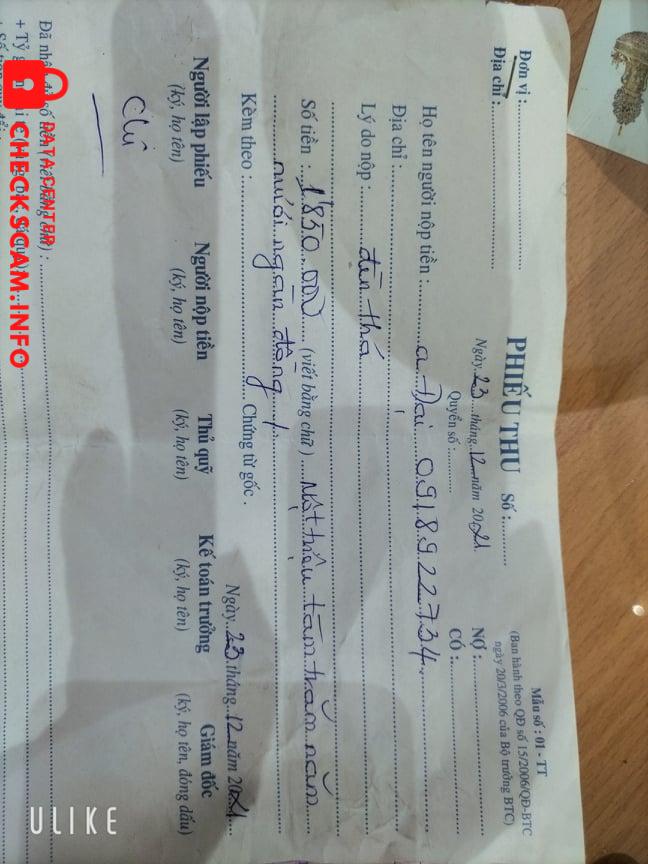 Đơn vị :
Địa chỉ :
Mẫu số : 01 - TT
(Ban hành theo QĐ số 15/2006/QĐ-BTC
ngày 20/3/2006 của Bộ trưởng BTC)
PHIẾU THU Số :
Ngày 23 tháng 12 năm 2021
Quyển số :
NỢ :
CÓ :
Họ tên người nộp tiền : a Đại 0918922734
Địa chỉ :
Lý do nộp : đèn thá
Số tiền : 1.850.000 (viết bằng chữ) Một triệu tám trăm năm
mươi ngàn đồng
Kèm theo : Chứng từ gốc .
Ngày 23 tháng 12 năm 2021
Người lập phiếu Người nộp tiền Thủ quỹ Kế toán trưởng Giám đốc
(ký, họ tên) (ký, họ tên) (ký, họ tên) (ký, họ tên) (ký, họ tên, đóng dấu)
Đã nhận đủ số tiền :
+ Tỷ giá
DATA CENTER
CHECKSCAM.INFO
ULIKE